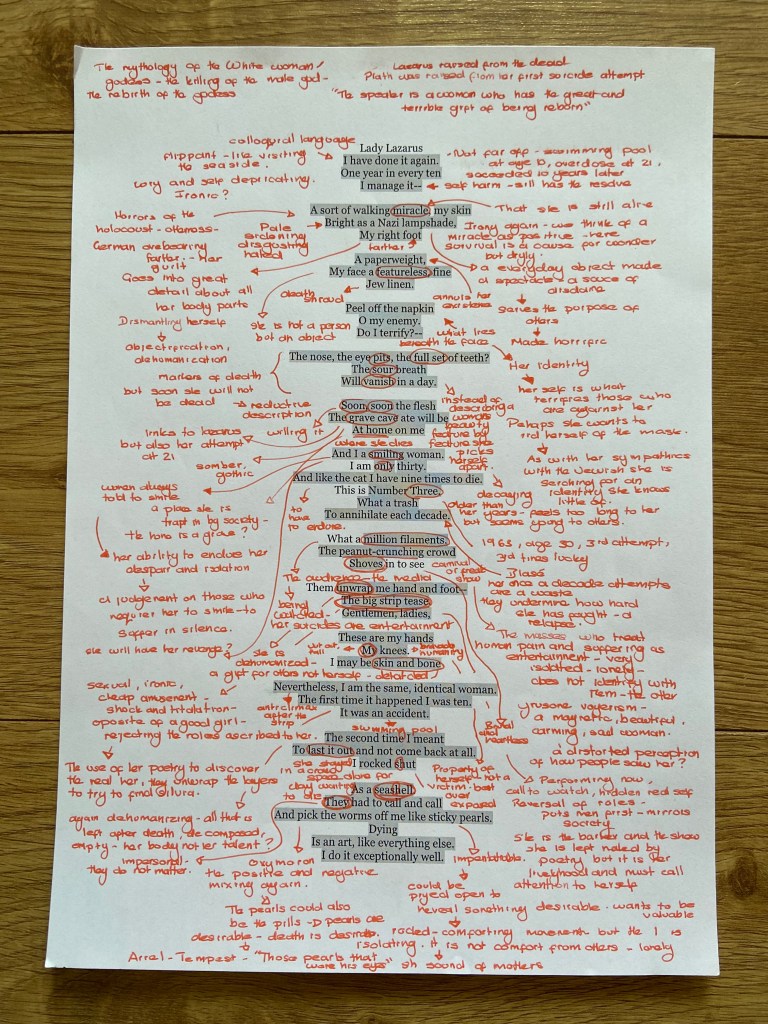 The mythology of the White woman/
goddess - the killing of the male god-
the rebirth of the godess
Lazarus raised from the dead
Plath was raised from her first suicide attempt
"The speaker is a woman who has the great and
terrible gift of being reborn"
colloquial language
flippant - like visiting
the seaside.
wry and self depricating.
Ironic?
Lady Lazarus
I have done it again.
One year in every ten
I manage it--
-Not far off - swimming pool
at age 10, overdose at 21,
succeeded 10 years later
self harm - still has the resolve
A sort of walking miracle, my skin
Bright as a Nazi lampshade,
My right foot
That she is still alive
Horrors of the
holocaust -
German overbearing
father - her
guilt
Pale
disgusting
naked
Irony again - we think of a
miracle as positive - here
survival is a cause for wonder
but dryly.
father
A paperweight,
My face a featureless, fine
Jew linen.
a everyday object made
a spectacle - a souce of
disdain
Goes into great
detail about all
her body parts
death
shroud
annuls her
existence
serves the purpose of
others
Made horrific
Peel off the napkin
O my enemy.
Do I terrify?--
Dismantling herself
objectification,
dehumanication
she is not a person
but an object
what lies
beneath the face
Her identity
The nose, the eye pits, the full set of teeth?
The sour breath
Will vanish in a day.
markers of death
but soon she will not
be dead
reductive
description
her self is what
terrifies those who
are against her
Pehaps she wants to
rid herself of the mask.
instead of
describing a
womans
beauty
feature by
feature she
picks
herself
apart.
Soon, soon the flesh
The grave cave ate will be
At home on me
links to lazarus
but also her attempt
at 21
willing it
where she dies
somber,
gothic
And I a smiling woman.
I am only thirty.
And like the cat I have nine times to die.
As with her sympathies
with the Jewish she is
serching for an
identity she knows
little of.
women always
told to smile
a place she is
trapt in by society -
The home is a grave?
to
have
to endure.
This is Number Three.
What a trash
To annihilate each decade.
decaying
older than
her years - feels too long to her
but seems young to others.
1963, age 30, 3rd attempt,
3rd times lucky
her ability to endure her
despair and isolation
What a million filaments.
The peanut-crunching crowd
Shoves in to see
carnival
or freak
show
Blasé
her once a decade attempts
are a waste
they undermine how hard
she has fought - a
relapse.
The audience - the media
a judgement on those who
require her to smile - to
suffer in silence.
she will have her revenge?
being
watched -
her suicides are entertainment
Them unwrap me hand and foot--
The big strip tease.
Gentlemen, ladies,
The masses who treat
human pain and suffering as
entertainment - very
isolated - lonely -
does not identify with
them - the other
These are my hands
My knees.
I may be skin and bone,
she is
dehumanized -
a gift for others not herself -
humanity
sexual, ironic,
cheap amusement -
shock and titilation -
oposite of a good girl -
rejecting the roles ascribed to her.
anticlimax
after the
strip
Nevertheless, I am the same, identical woman.
The first time it happened I was ten.
It was an accident.
voyerism -
a magnetic, beautiful,
carming, sad woman.
a distorted perception
of how people saw her?
heartless
swimming pool
The second time I meant
To last it out and not come back at all.
I rocked shut
The use of her poetry to discover
the real her, they unwrap the layers
to try to find Silvia.
she stayed
in a crawl
space alone for
days wanting
to die
Property of
herself - not a
victim.
over
exposed
Performing now,
call to watch, hidden red self
Reversal of roles -
puts men first - mirrors
society
As a seashell.
They had to call and call
And pick the worms off me like sticky pearls.
again dehumanizing - all that is
left after death, decomposed,
empty - her body not her talent?
impersonal -
they do not matter.
She is the barker and the show
she is left naked by
poetry but it is her
livelihood and must call
attention to herself
Dying
Is an art, like everything else.
I do it exceptionally well.
Oxymoron
the positive and negative
mixing again.
impenitrable.
could be
pryed open to
reveal something desirable. wants to be
valuable
The pearls could also
be the pills - pearls are
desirable - death is desired.
rocked - comforting movement but the I is
isolating. it is not comfort from others - lonely
Ariel - Tempest - "Those pearls that
were his eyes"
sh sound of mothers